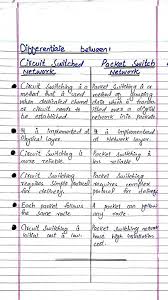 Differentiate between:
Circuit Switched Network
Packet Switch Network
Circuit Switching is a
method that is used
when dedicated channel
or circuit needs to
be established.
Packet Switching is a
method of grouping
data which is
over a digital
network into
It is implemented at
Physical Layer.
It is implemented
at Network Layer.
Circuit Switching is
more reliable.
Packet switching is
less reliable
Circuit Switching
requires simple protocol
for delivery.
Packet Switching
requires complex
protocol for delivery.
Each packet follows
the same route
A packet can follow
any route.
Circuit Switching's
initial cost is low.
Packet switching
have high installation